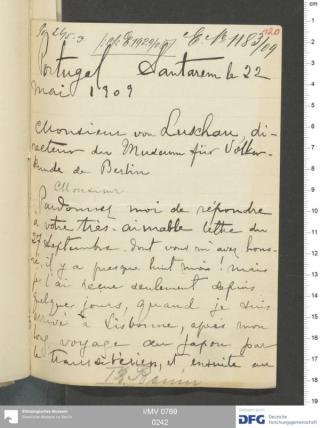 120
E. № 1183/09
Portugal Santarem le 22
mai 1909
Monsieur von Luschan, di-
recteur du Museum für Völker-
kunde de Berlin
Monsieur
Pardonnez moi de répondre
a votre très-aimable lettre du
27 Septembre dont vous m'avez hono-
ré, il y a presque huit mois! mais
je l'ai reçue seulement depuis
quelques jours, quand je suis
arrivé a Lisbonne, après mon
long voyage au Japon par
le transsibérien, et ensuite au
Benin
Ethnologisches Museum
Staatliche Museen zu Berlin
I/MV 0769
0242
GEFÖRDERT DURCH
DFG Deutsche
Forschungsgemeinschaft
cm
1
2
3
4
5
6
7
8
9
10
11
12
13
14
15
16
17
18
19